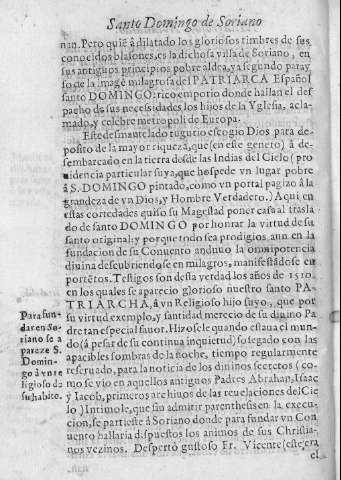 Santo Domingo de Soriano
nan. Pero quiē à dilatado los gloriosos timbres de sus
conocidos blasones, es la dichosa villa de Soriano, en
sus antiguos principios pobre aldea, ya segundo paray
so de la Imagē milagrosa del PATRIARCA Español
santo DOMINGO: rico emporio donde hallan el des
pacho de sus necesidades los hijos de la Yglesa, acla-
mado, y celebre metropoli de Europa.
Este desmantelado tugurio escogio Dios para de-
posito de la mayor riqueza, que (en este genero) à de-
sembarcado en la tierra desde las Indias del Cielo (pro
uidencia particular suya, que hospede vn lugar pobre
à S. DOMINGO pintado, como vn portal pagizo à la
grandeza de vn Dios, y Hombre Verdadero.) Aqui en
estas cortedades quiso su Magestad poner casa al trasla
do de santo DOMINGO por honrar la virtud de su
santo original: y porque todo sea prodigios aun en la
fundacion de su Conuento anduuo la omnipotencia
diuina descubriendose en milagros, manifestādose en
portētos. Testigos son desta verdad los años de 1510.
en los quales se aparecio glorioso nuestro santo PA-
TRIARCHA, à vn Religioso hijo suyo, que por
su virtud exemplo, y santidad merecio de su diuino Pa
dre tan especial fauor. Hizosele quando estaua el mun-
do (à pesar de su continua inquietud) sosegado con las
apacibles sombras de la noche, tiempo regularmente
reseruado, para la noticia de los diuinos secretos (co-
mo se vio en aquellos antiguos Padres Abrahan, Isaac
y Iacob, primeros archiuos de las reuelaciones del Cie
lo) Intimole, que sin admitir parenthesis en la execu-
cion, se partiesse à Soriano donde para fundar vn Con
uento hallaria dispuestos los animos de sus Christia-
nos vezinos. Despertò gustoso Fr. Vicente (este era
el
Para fun
dar en So-
riano se a
pareze S.
Domin-
go à vn re
ligioso de
su habito.